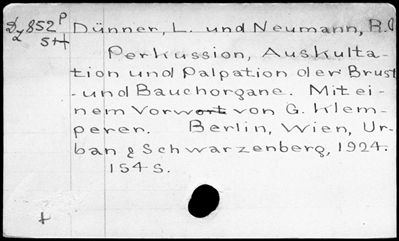 Dz 852 P Dünner, L. und Neumann, R.
5H
Perkussion, Auskulta-
tion und Palpation der Brust
- und Bauchorgane. Mit ei-
nem Vorwort von G. Klem-
perer. Berlin, Wien, Ur-
ban & Schwarzenberg, 1924.
154 S.